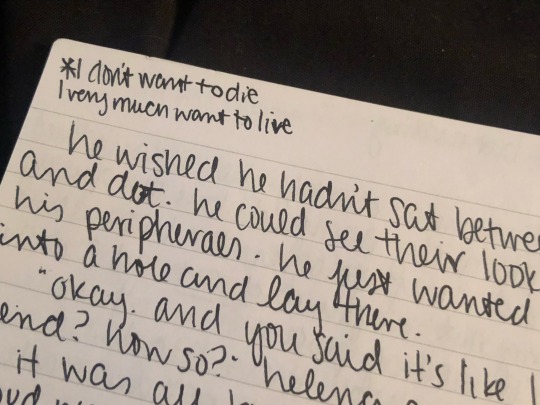 *I don't want to die
I very much want to live
he wished he hadn't sat betwee
and dot. he could see their look
his peripheraes. he just wanted
into a hole and lay there.
"okay. and you said it's like I
end? how so?" helena
it was all